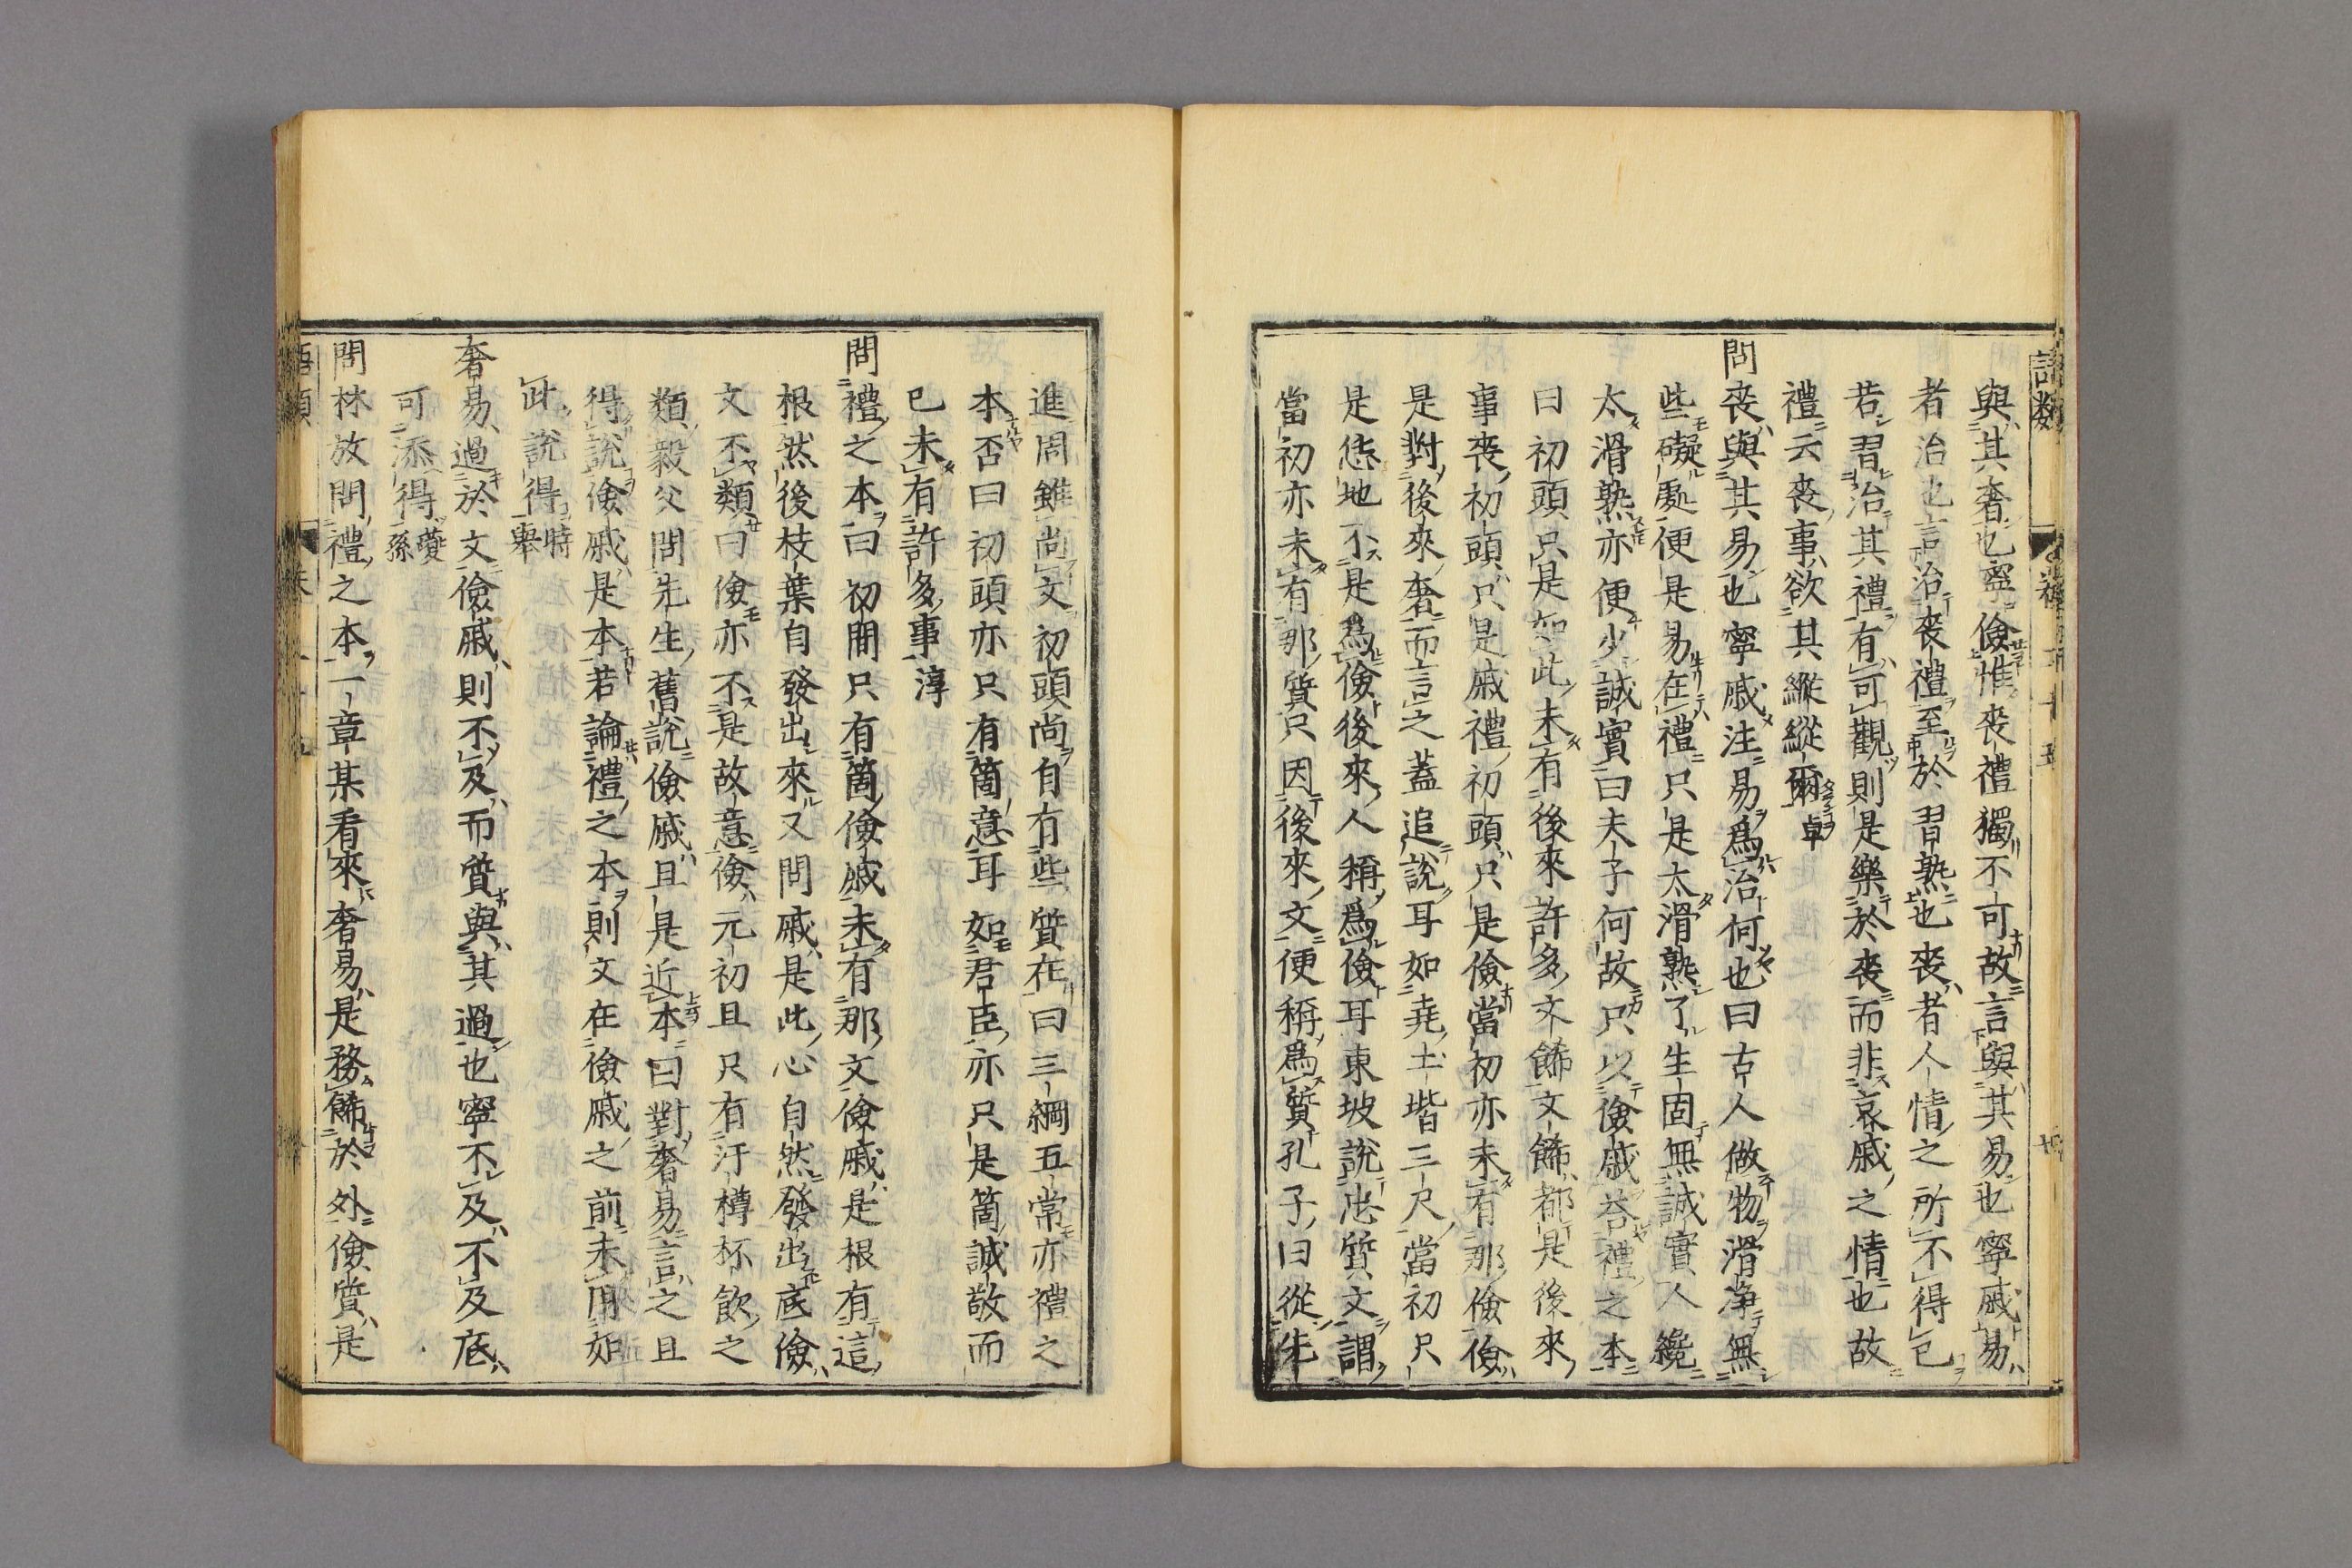 語類
與其奢也寧儉惟喪禮獨不可故言與其易也寧戚易
者治也言治喪禮至於習熟也喪者人情之所不得已
若習治其禮有可觀則是樂於喪而非哀戚之情也故
禮云喪事欲其縱縱爾卓
問喪與其易也寧戚注易爲治何也曰古人做物滑淨無
些礙處便是易在禮只是太滑熟了生固無誠實人纔
太滑熟亦便少誠實曰夫子何故只以儉戚荅禮之本
曰初頭只是如此未有後來許多文飾文飾都是後來
事喪初頭只是戚禮初頭只是儉當初亦未有那儉儉
是對後來奢而言之蓋追說耳如堯土堦三尺當初只
是恁地不是爲儉後來人稱爲儉耳東坡說忠質文謂
當初亦未有那質只因後來文便稱爲質孔子曰從先
進周雖尚文初頭尚自有些質在曰三綱五常亦禮之
本否曰初頭亦只有箇意耳如君臣亦只是箇誠敬而
已未有許多事淳
問禮之本曰初間只有箇儉戚未有那文儉戚是根有這
根然後枝葉自發出來又問戚是此心自然發出底儉
文不類曰儉亦不是故意儉元初且只有汙樽杯飲之
類毅父問先生舊說儉戚且是近本曰對奢易言之且
得說儉戚是本若論禮之本則文在儉戚之前未用如
此說得時舉
奢易過於文儉戚則不及而質與其過也寧不及不及底
可添得䕫孫
問林放問禮之本一章某看來奢易是務飾於外儉質是
語類